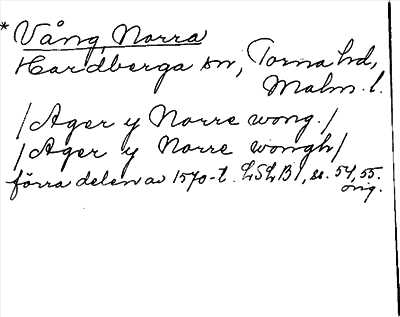 *Vång, Norra
Hardberga sn, Torna hd,
Malm. l.
/Ager y Norre wong./
/Ager y Norre wongh/
förra delen av 1570-t. LSLB1, s. 54, 55.
orig.